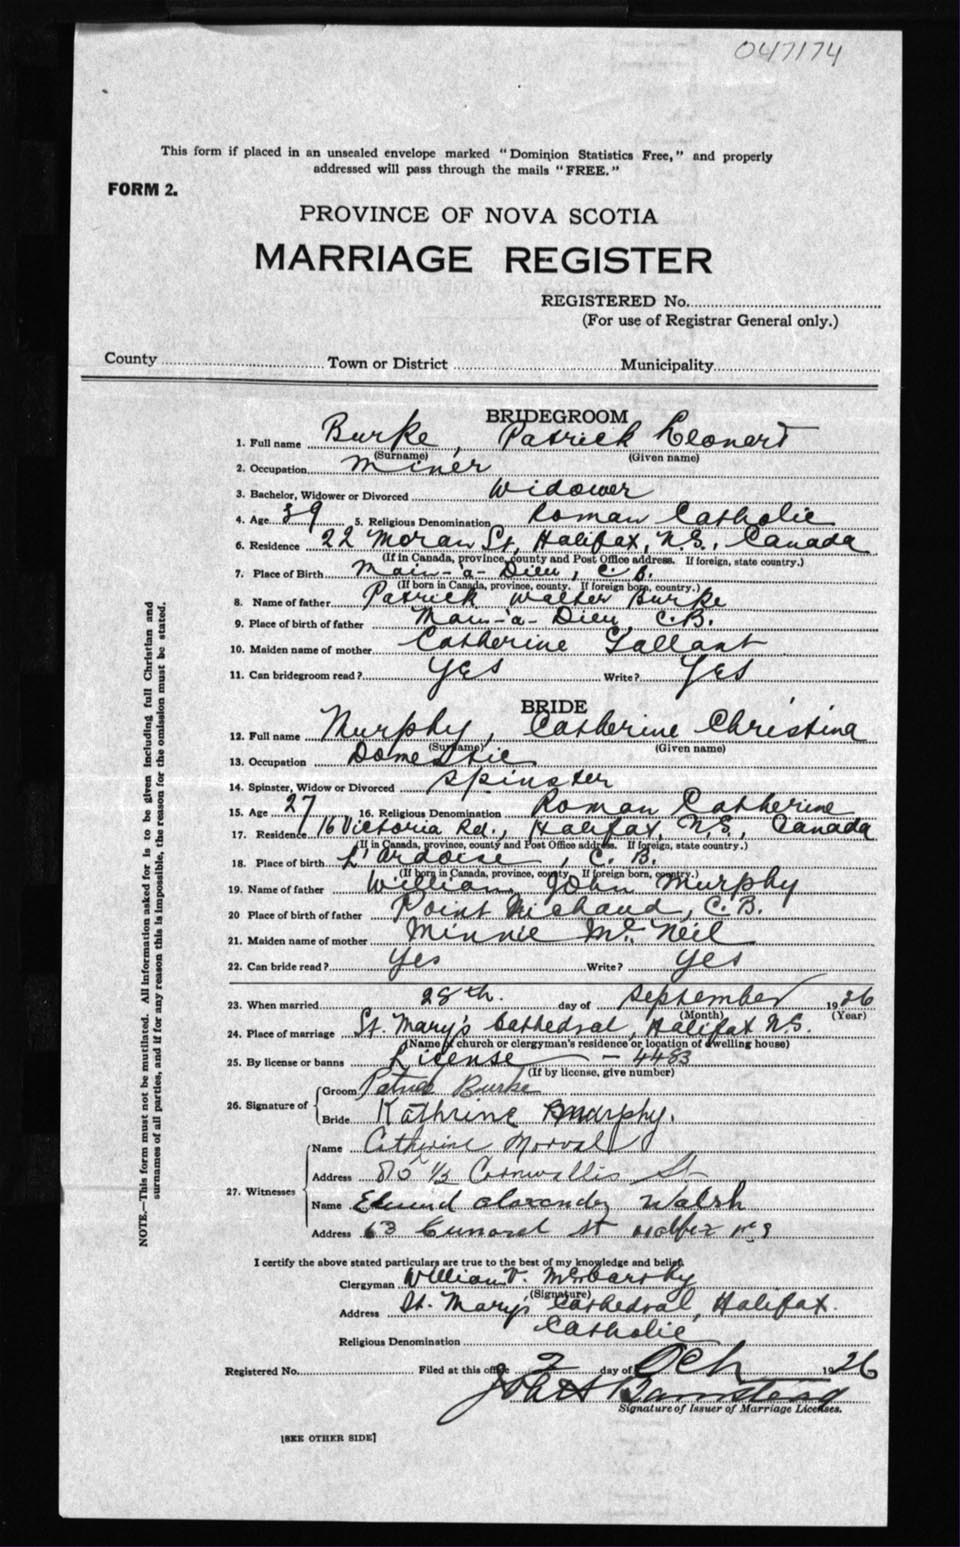 047174
This form if placed in an unsealed envelope marked "Dominion Statistics Free," and properly
addressed will pass through the mails "FREE."
FORM 2.
PROVINCE OF NOVA SCOTIA
MARRIAGE REGISTER
REGISTERED No.
(For use of Registrar General only.)
County Town or District Municipality
BRIDEGROOM
1. Full name Burke, Patrick Leonert
(Surname) (Given name)
2. Occupation Miner
3. Bachelor, Widower or Divorced Widower
4. Age 39 5. Religious Denomination Roman Catholic
6. Residence 22 Moran St, Halifax, N.S., Canada
(If in Canada, province, county and Post Office address. If foreign, state country.)
7. Place of Birth Main-à-Dieu, C.B.
(If born in Canada, province, county. If foreign born, country.)
8. Name of father Patrick Walter Burke
9. Place of birth of father Main-à-Dieu, C.B.
10. Maiden name of mother Catherine Gallant
11. Can bridegroom read? Yes Write? Yes
BRIDE
12. Full name Murphy, Catherine Christina
(Surname) (Given name)
13. Occupation Domestic
14. Spinster, Widow or Divorced Spinster
15. Age 27 16. Religious Denomination Roman Catherine
17. Residence 16 Victoria Rd., Halifax, N.S., Canada
(If in Canada, province, county and Post Office address. If foreign, state country.)
18. Place of birth L'Ardoise, C.B.
(If born in Canada, province, county. If foreign born, country.)
19. Name of father William John Murphy
20 Place of birth of father Point Michaud, C.B.
21. Maiden name of mother Minnie McNeil
22. Can bride read? Yes Write? Yes
23. When married 28th. day of September 1926
(Month) (Year)
24. Place of marriage St. Mary's Cathedral, Halifax N.S.
(Name of church or clergyman's residence or location of dwelling house)
25. By license or banns License - 4483
(If by license, give number)
26. Signature of
Groom Patrick Burke
Bride Kathrine Murphy.
27. Witnesses
Name Catherine Morval
Address 85 1/2 Cornwallis St
Name Edmund Alexander Walsh
Address 63 Cunard St Halifax N S
I certify the above stated particulars are true to the best of my knowledge and belief.
Clergyman William V. McCarthy
(Signature)
Address St. Mary's Cathedral, Halifax.
Religious Denomination Catholic
Registered No. Filed at this office 2 day of Oct 1926
John H Barnstead
Signature of Issuer of Marriage Licenses.
[SEE OTHER SIDE]
NOTE.—This form must not be mutilated. All information asked for is to be given including full Christian and
surnames of all parties, and if for any reason this is impossible, the reason for the omission must be stated.